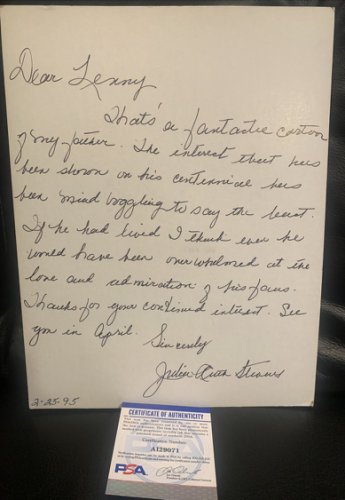 Dear Lenny
That's a fantastic cartoon
of my father. The interest that has
been shown on his centennial has
been mind boggling to say the least.
If he had lived I think even he
would have been overwhelmed at the
love and admiration of his fans.
Thanks for your continued interest. See
you in April.
Sincerely
Julia Ruth Stevens
2-25-95
CERTIFICATE OF AUTHENTICITY
Certification Number
AI29071
PSA